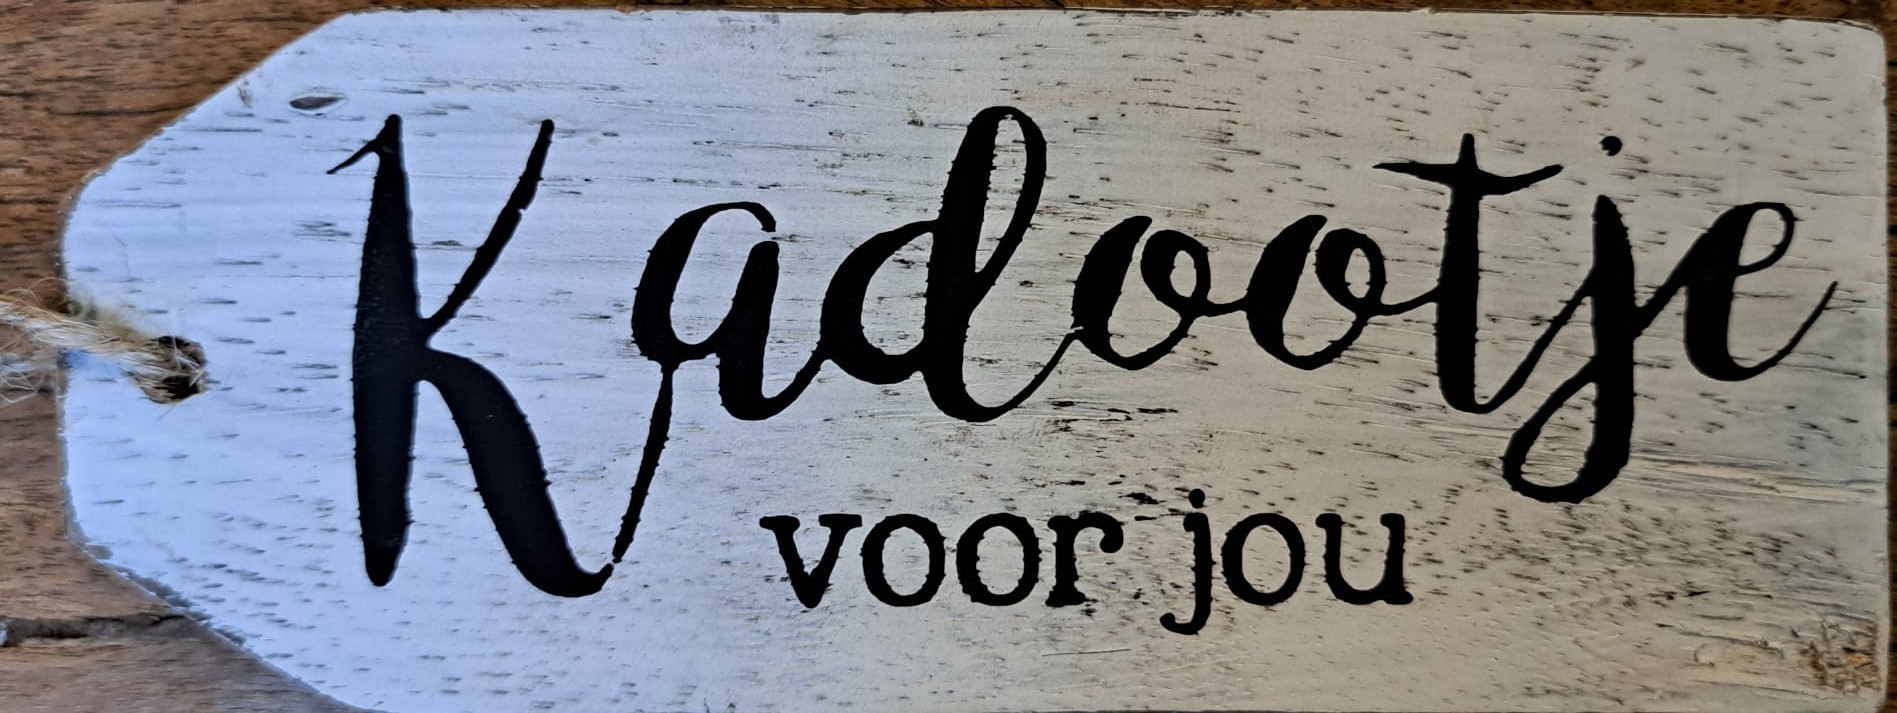 Kadootje
voor jou